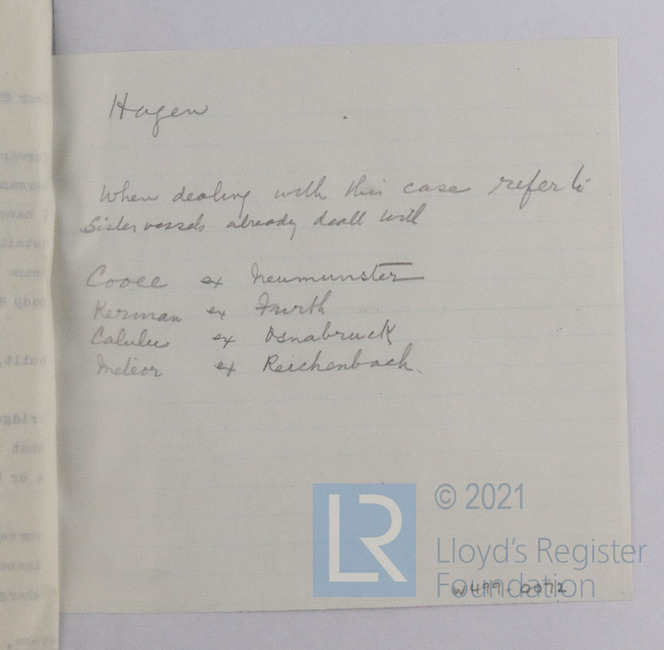 Hagen
When dealing with this case refer to
Sister vessels already dealt with
Cooee ex Neumunster
Kerman ex Furth
Calulu ex Osnabruck
Meteor ex Reichenbach
LR
© 2021
Lloyd's Register
Foundation
W499-0072